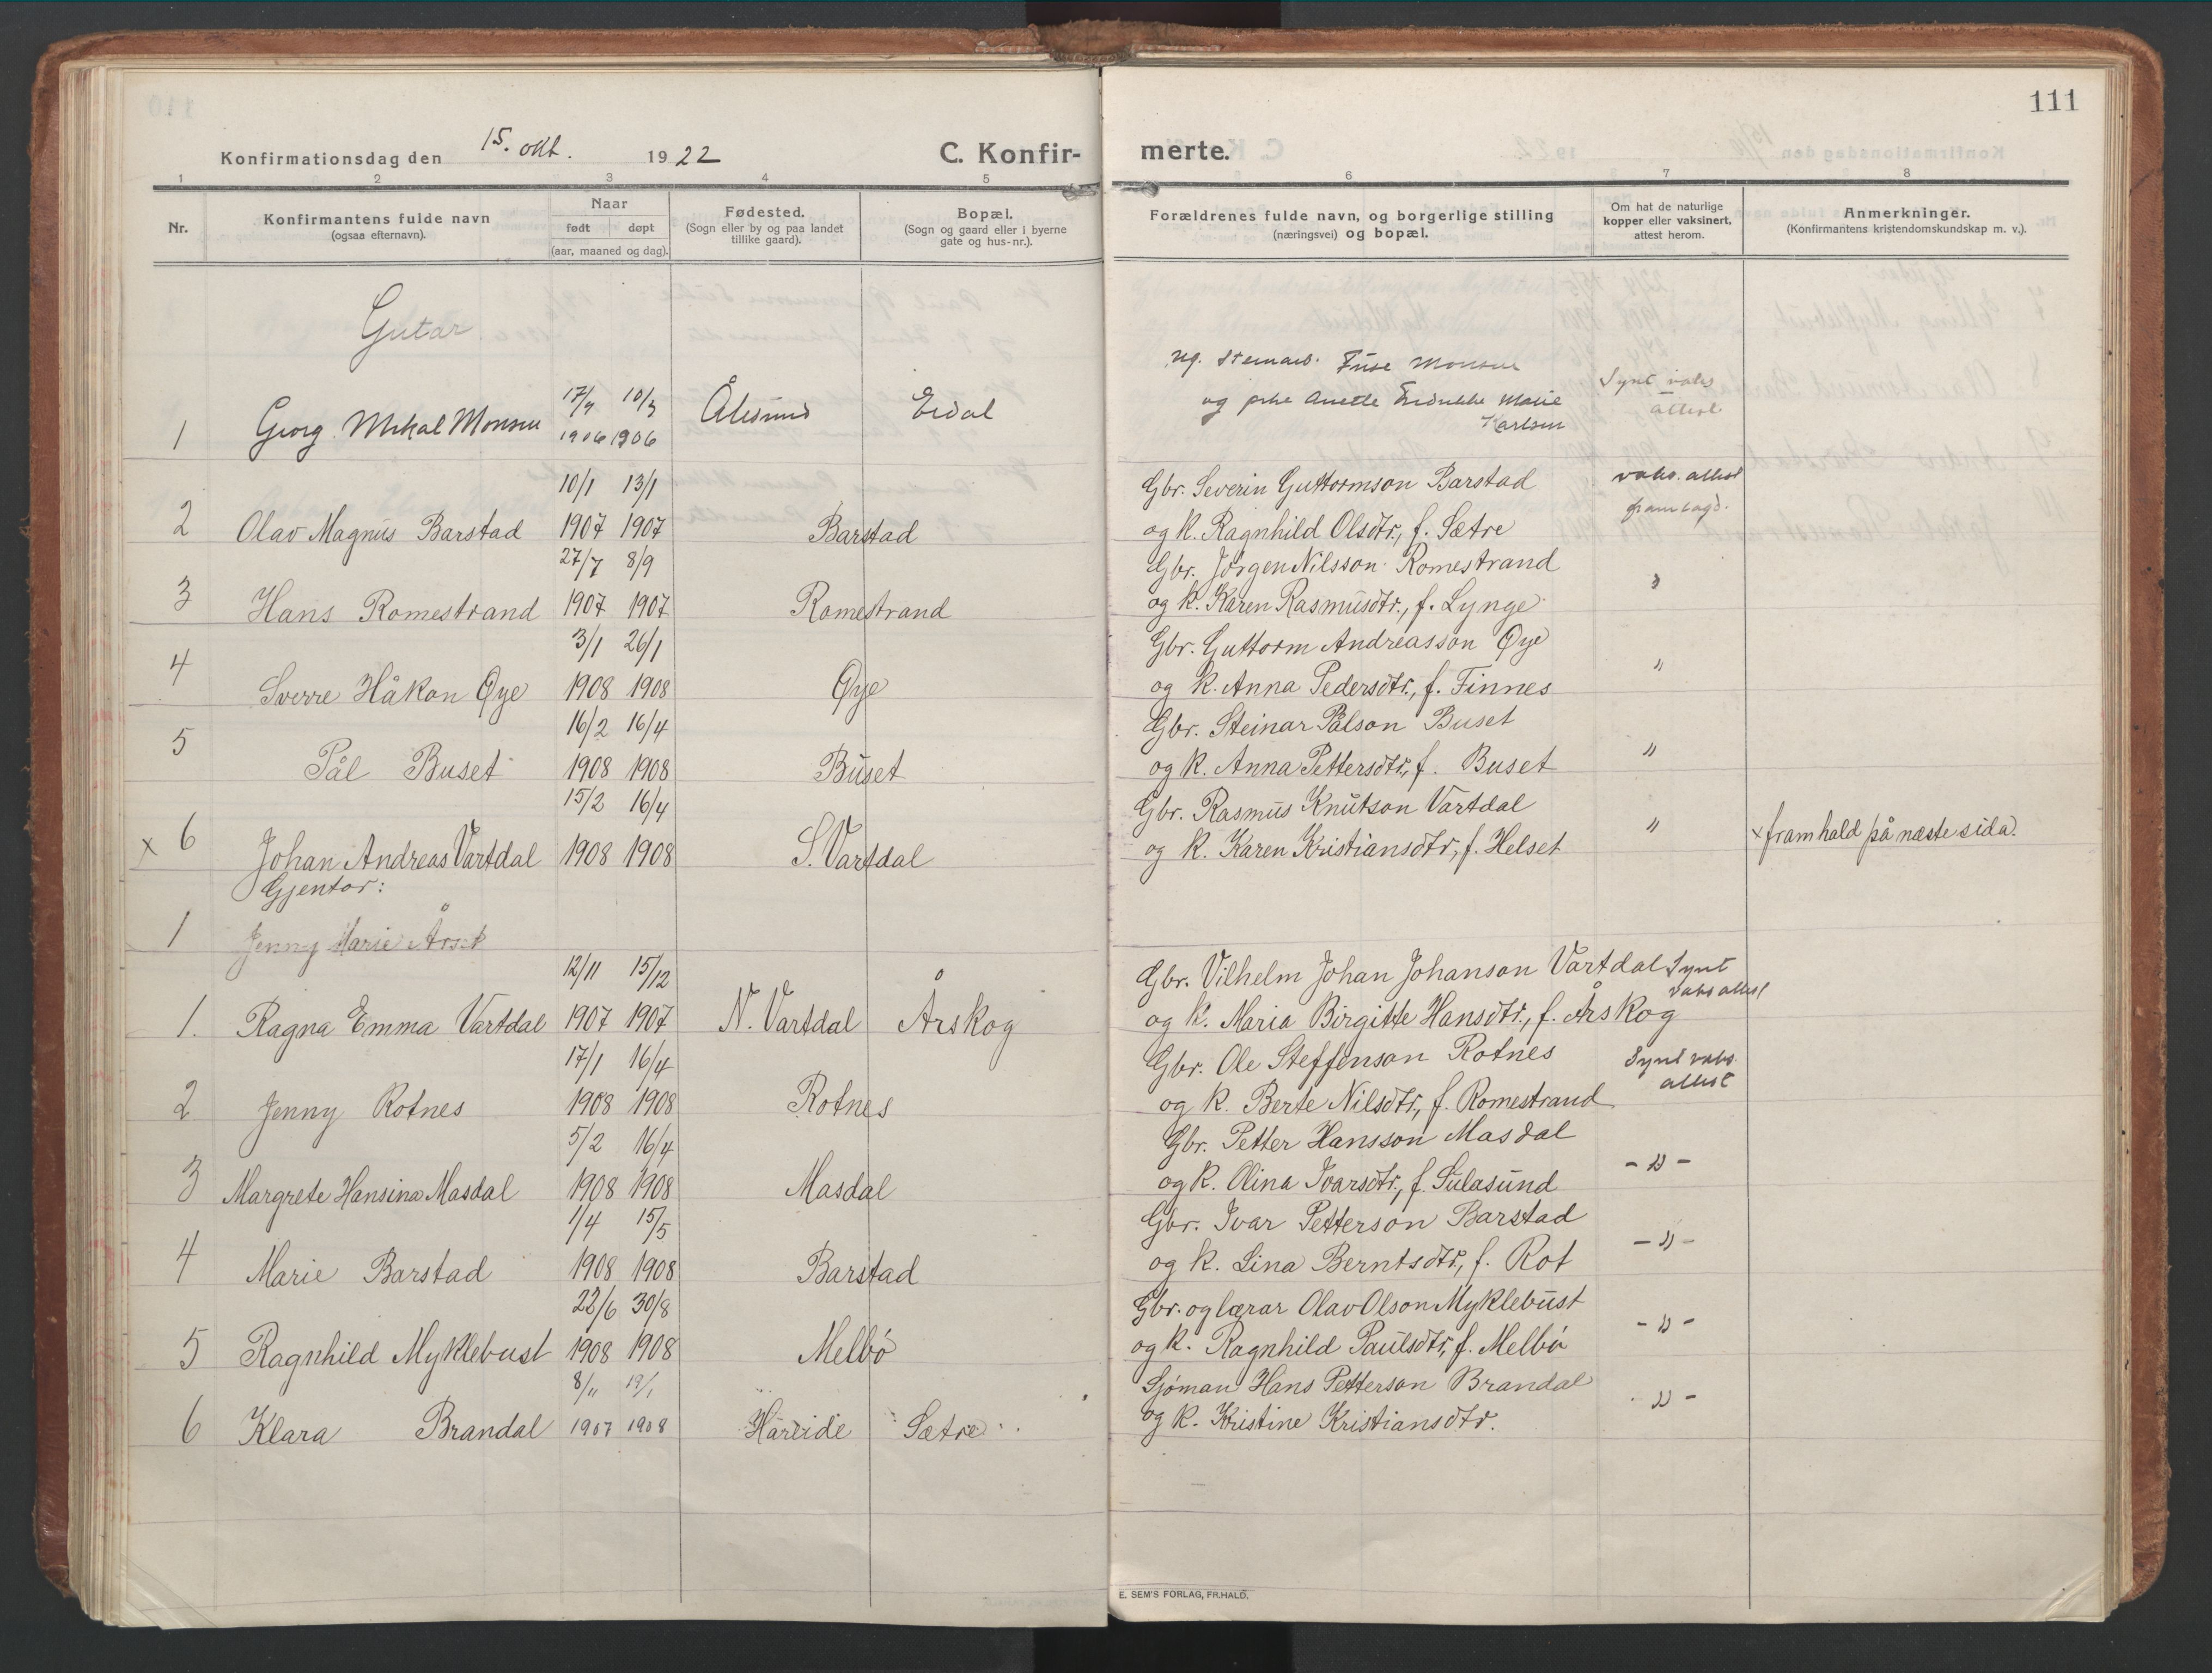 111
Konfirmationsdag den 15. okt. 1922
C. Konfir-
merte.
1 2 3 4 5 6 7 8
Nr.
Konfirmantens fulde navn
(ogsaa efternavn).
Naar
født døpt
(aar, maaned og dag).
Fødested.
(Sogn eller by og paa landet
tillike gaard).
Bopæl.
(Sogn og gaard eller i byerne
gate og hus-nr.).
Forældrenes fulde navn, og borgerlige stilling
(næringsvei) og bopæl.
Om hat de naturlige
kopper eller vaksinert,
attest herom.
Anmerkninger.
(Konfirmantens kristendomskundskap m. v.).
Gutar
17/7 10/3
1 Georg Mikal Monsen 1906 1906 Ålesund Eidal
Ug. Steinarb. Monsen
og pike Anette Marie
Karlsen
Synt vaks
attest
10/1 13/1
2 Olav Magnus Barstad 1907 1907 Barstad
Gbr. Severin Guttormson Barstad
og k. Ragnhild Olsdtr., f. Sætre
vaks. attest
framlagd.
27/7 8/9
3 Hans Romestrand 1907 1907 Romestrand
Gbr. Jörgen Nilsson Romestrand
og k. Karen Rasmusdtr., f. Lynge
"
3/1 26/1
4 Sverre Håkon Øye 1908 1908 Øye
Gbr. Guttorm Andreasson Øye
og k. Anna Pedersdtr., f. Finnes
"
16/2 16/4
5 Pål Buset 1908 1908 Buset
Gbr. Steinar Pålson Buset
og k. Anna Pettersdtr., f. Buset
"
15/2 16/4
x 6 Johan Andreas Vartdal 1908 1908 S. Vartdal
Gbr. Rasmus Knutson Vartdal
og k. Karen Kristiansdtr, f. Helset
"
x framhald på næste sida.
Gjentor:
1 Jenny Marie Årset
12/11 15/12
1. Ragna Emma Vartdal 1907 1907 N. Vartdal Årskog
Gbr. Vilhelm Johan Johanson Vartdal
og k. Maria Birgitte Hansdtr., f. Årskog
Synt
vaks attest
17/1 16/4
2 Jenny Rotnes 1908 1908 Rotnes
Gbr. Ole Steffenson Rotnes
og k. Berte Nilsdtr, f. Romestrand
Synt vaks.
attest
5/2 16/4
3 Margrete Hansina Masdal 1908 1908 Masdal
Gbr. Petter Hansson Masdal
og k. Olina Ivarsdtr., f. Sulasund
- " -
1/4 15/5
4 Marie Barstad 1908 1908 Barstad
Gbr. Ivar Petterson Barstad
og k. Lina Berntsdtr, f. Rot
- " -
22/6 30/8
5 Ragnhild Myklebust 1908 1908 Melbö
Gbr. og lærar Olav Olson Myklebust
og k. Ragnhild Paulsdtr, f. Melbö
- " -
8/11 19/1
6 Klara Brandal 1907 1908 Hareide Sætre
Sjöman Hans Petterson Brandal
og k. Kristine Kristiansdtr.
- " -
E. SEM'S FORLAG, FR.HALD.